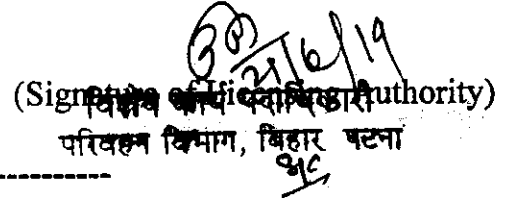 21/6/19
(Signature of Licensing Authority)
विशेष कार्य पदाधिकारी
परिवहन विभाग, बिहार पटना